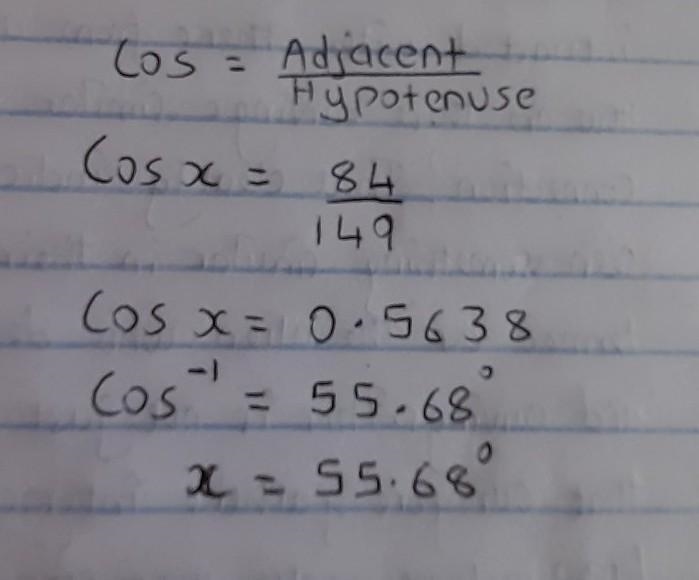 Cos = Adjacent/Hypotenuse
Cos x = 84/149
Cos x = 0.5638
Cos⁻¹ = 55.68°
x = 55.68°